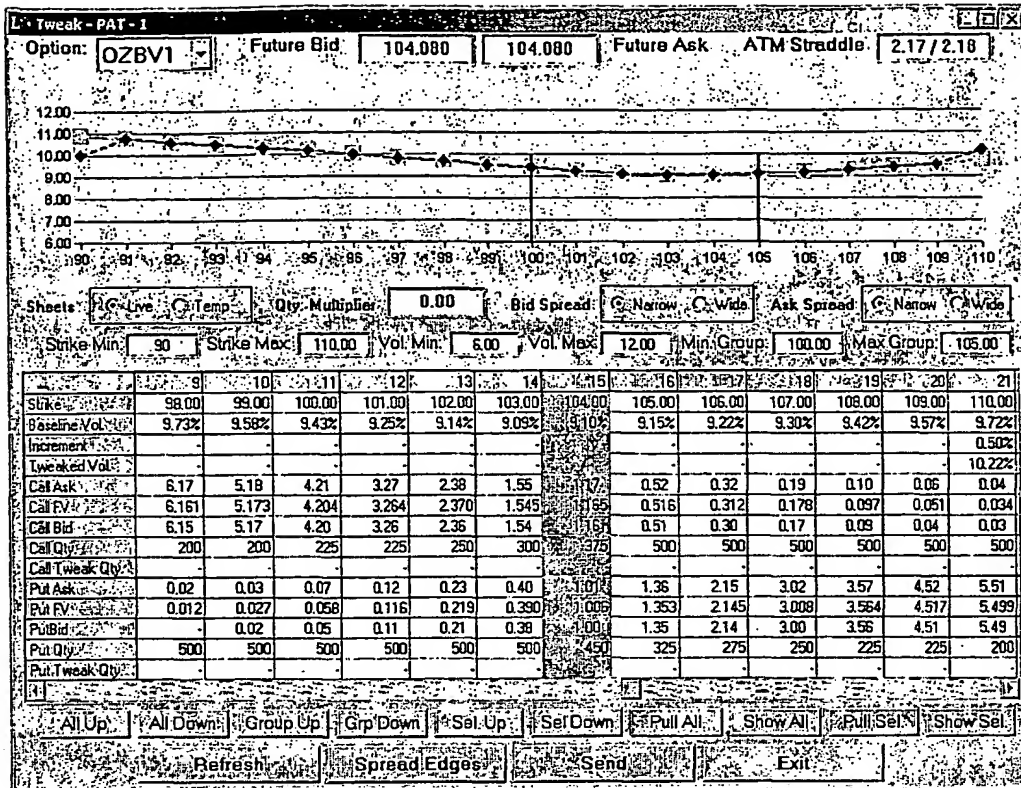 Tweak - PAT - 1
Option: OZBV1 Future Bid 104.080 104.080 Future Ask ATM Straddle 2.17 / 2.18
12.00
11.00
10.00
9.00
8.00
7.00
6.00
90 91 92 93 94 95 96 97 98 99 100 101 102 103 104 105 106 107 108 109 110
Sheets Live Temp Qty. Multiplier 0.00 Bid Spread Narrow Wide Ask Spread Narrow Wide
Strike Min. 90 Strike Max 110.00 Vol. Min. 6.00 Vol. Max 12.00 Min. Group 100.00 Max Group 105.00
9 10 11 12 13 14 15 16 17 18 19 20 21
Strike 98.00 99.00 100.00 101.00 102.00 103.00 104.00 105.00 106.00 107.00 108.00 109.00 110.00
Baseline Vol. 9.73% 9.58% 9.43% 9.25% 9.14% 9.09% 9.10% 9.15% 9.22% 9.30% 9.42% 9.57% 9.72%
Increment - - - - - - - - - - - 0.50%
Tweaked Vol. - - - - - - - - - - - 10.22%
Call Ask 6.17 5.18 4.21 3.27 2.38 1.55 0.52 0.32 0.19 0.10 0.06 0.04
Call FV 6.161 5.173 4.204 3.264 2.370 1.545 0.516 0.312 0.178 0.097 0.051 0.034
Call Bid 6.15 5.17 4.20 3.26 2.36 1.54 0.51 0.30 0.17 0.09 0.04 0.03
Call Qty 200 200 225 225 250 300 375 500 500 500 500 500 500
Call Tweak Qty - - - - - - - - - - - -
Put Ask 0.02 0.03 0.07 0.12 0.23 0.40 1.36 2.15 3.02 3.57 4.52 5.51
Put FV 0.012 0.027 0.058 0.116 0.219 0.390 1.006 1.353 2.145 3.008 3.564 4.517 5.499
Put Bid - 0.02 0.05 0.11 0.21 0.38 1.35 2.14 3.00 3.56 4.51 5.49
Put Qty 500 500 500 500 500 500 450 325 275 250 225 225 200
Put Tweak Qty - - - - - - - - - - - -
All Up All Down Group Up Grp Down Sel. Up Sel Down Pull All Show All Pull Sel Show Sel.
Refresh Spread Edges Send Exit